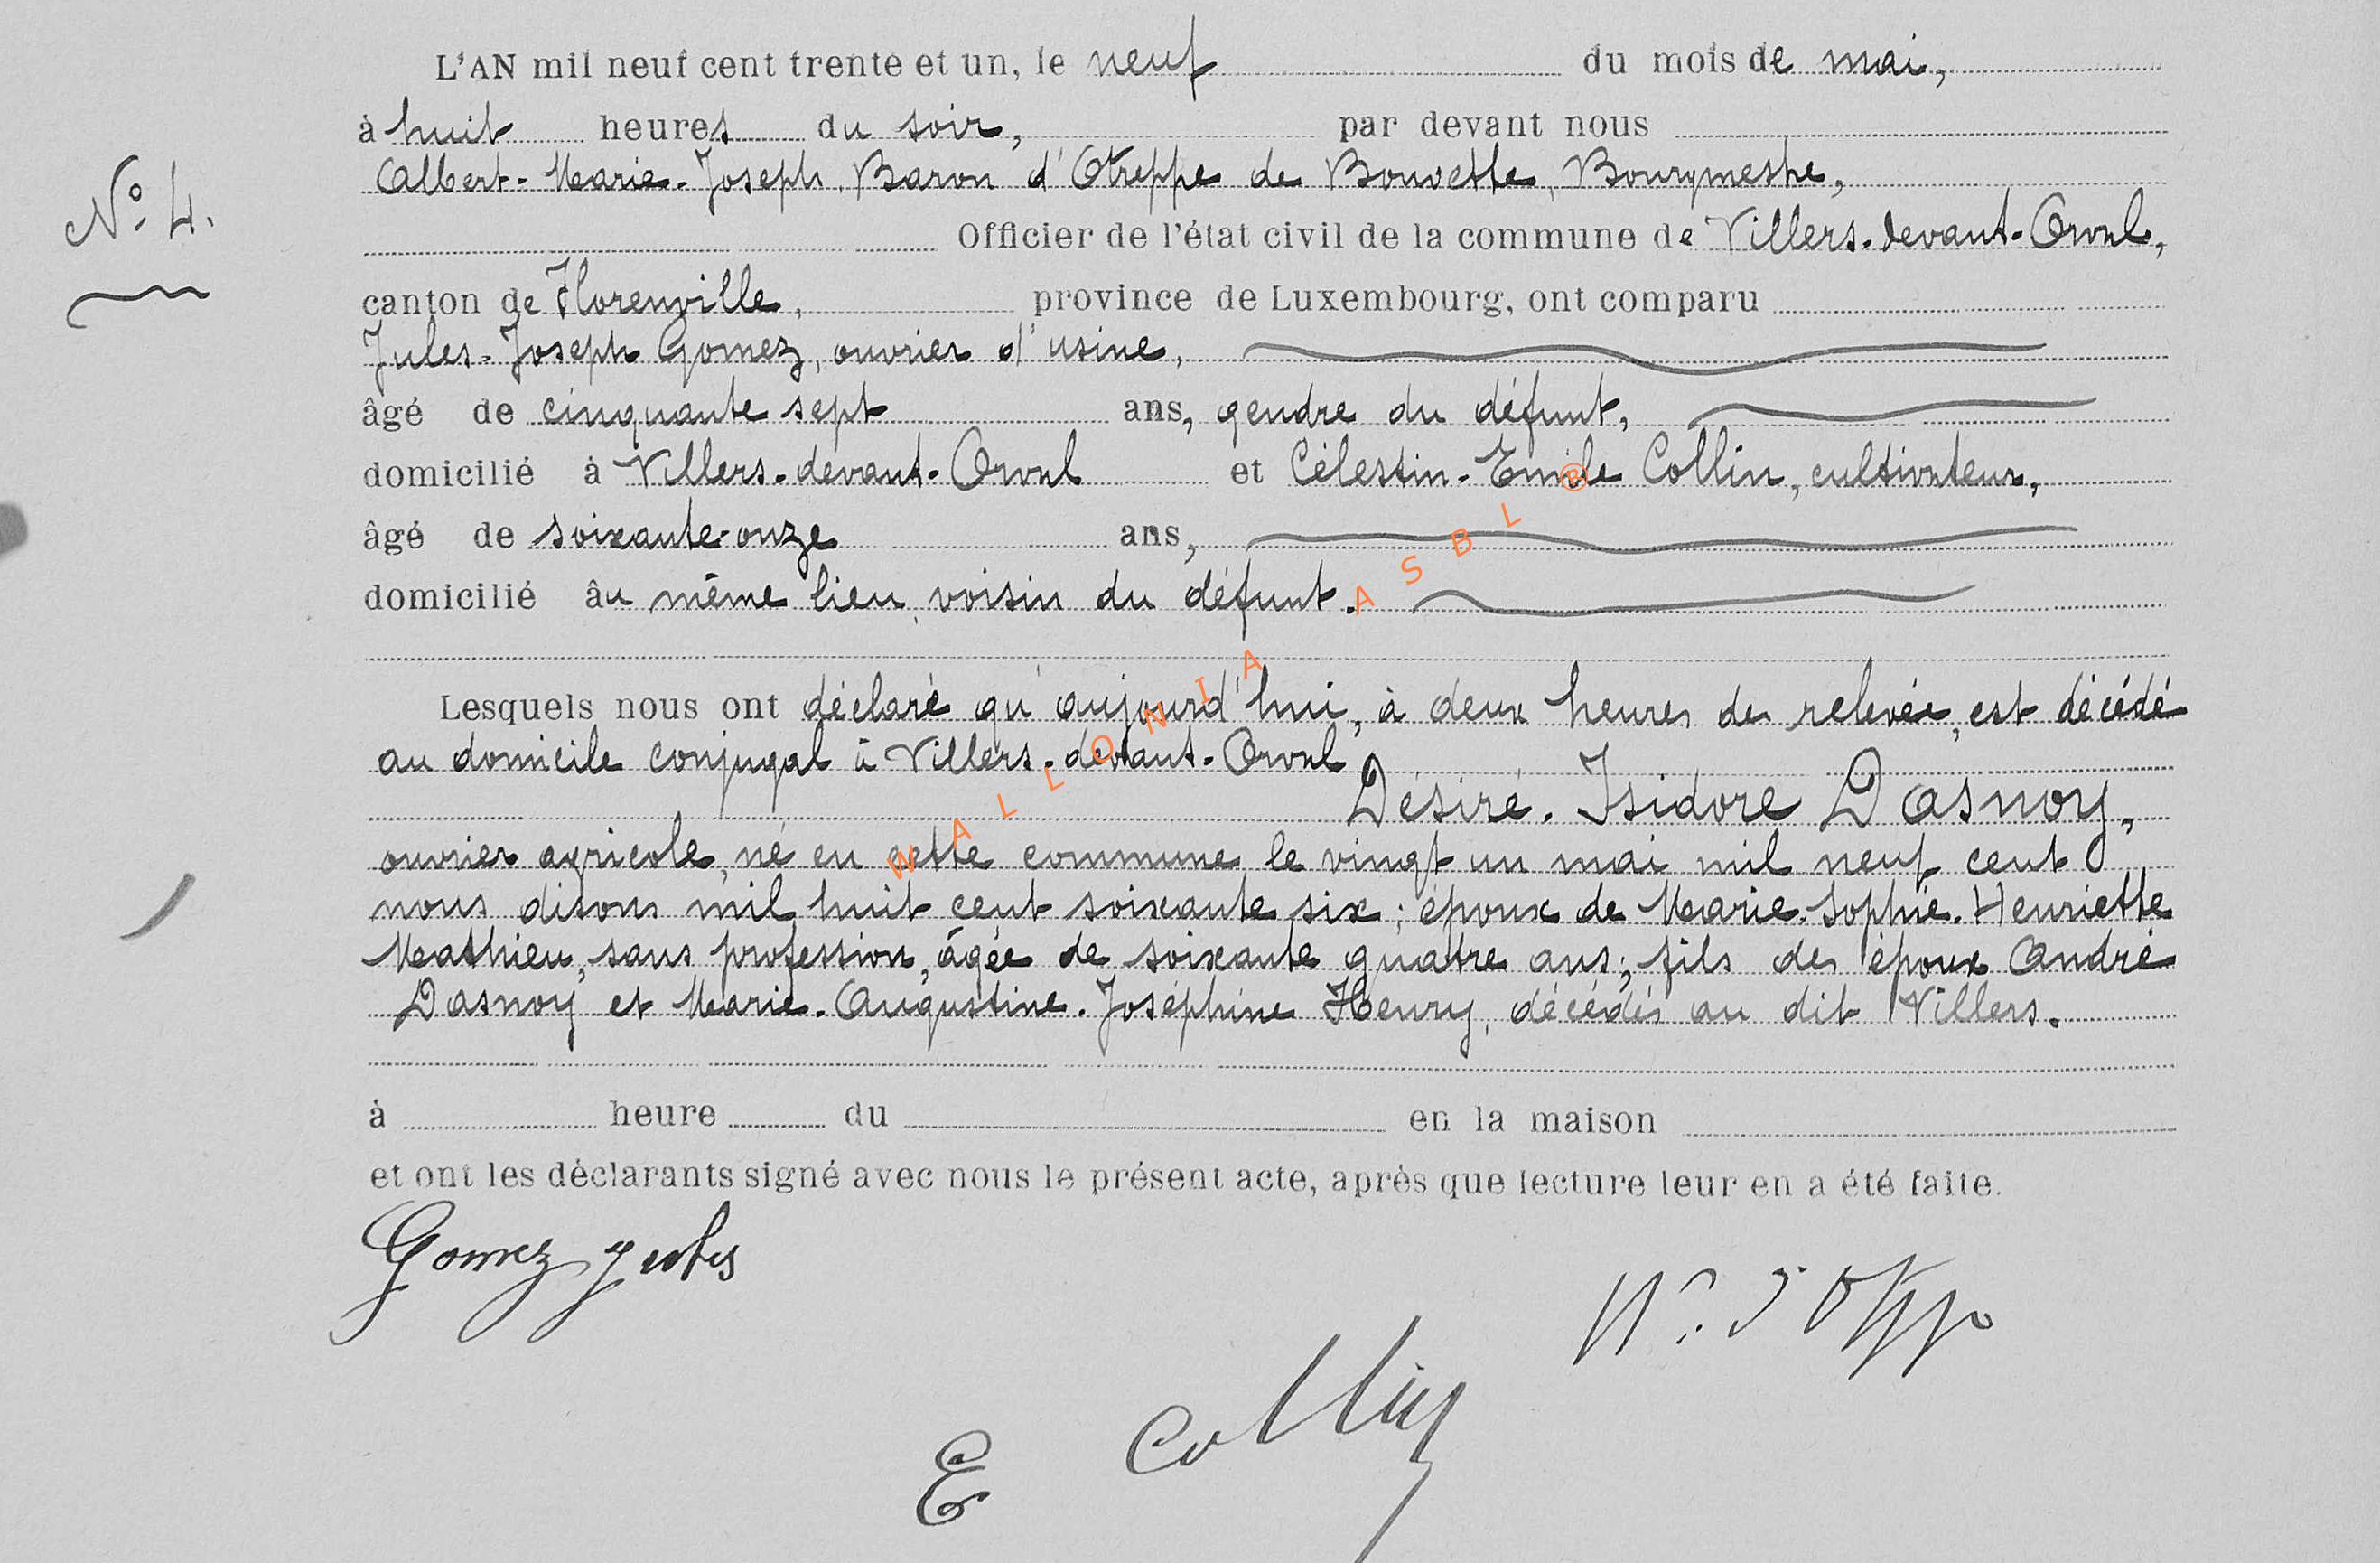 L'AN mil neuf cent trente et un, le neuf du mois de mai,
à huit heures du soir, par devant nous
Albert-Marie-Joseph, Baron d'Otreppe de Bouvette, Bourgmestre,
N° 4.
Officier de l'état civil de la commune de Villers-devant-Orval,
canton de Florenville, province de Luxembourg, ont comparu
Jules-Joseph Gomez, ouvrier d'usine,
âgé de cinquante sept ans, gendre du défunt,
domicilié à Villers-devant-Orval et Célestin-Emile Collin, cultivateur,
âgé de soixante-onze ans,
domicilié au même lieu, voisin du défunt.
Lesquels nous ont déclaré qu'aujourd'hui, à deux heures de relevée, est décédé
au domicile conjugal à Villers-devant-Orval
Désiré-Isidore Dasnoy,
ouvrier agricole, né en cette commune le vingt un mai mil neuf cent
nous disons mil huit cent soixante six; époux de Marie-Sophie-Henriette
Mathieu, sans profession, âgée de soixante quatre ans; fils des époux André
Dasnoy et Marie-Augustine-Joséphine Henry, décédés au dit Villers.
à heure du en la maison
et ont les déclarants signé avec nous le présent acte, après que lecture leur en a été faite.
Gomez Jules
E Collin
WALLONIA ASBL ®